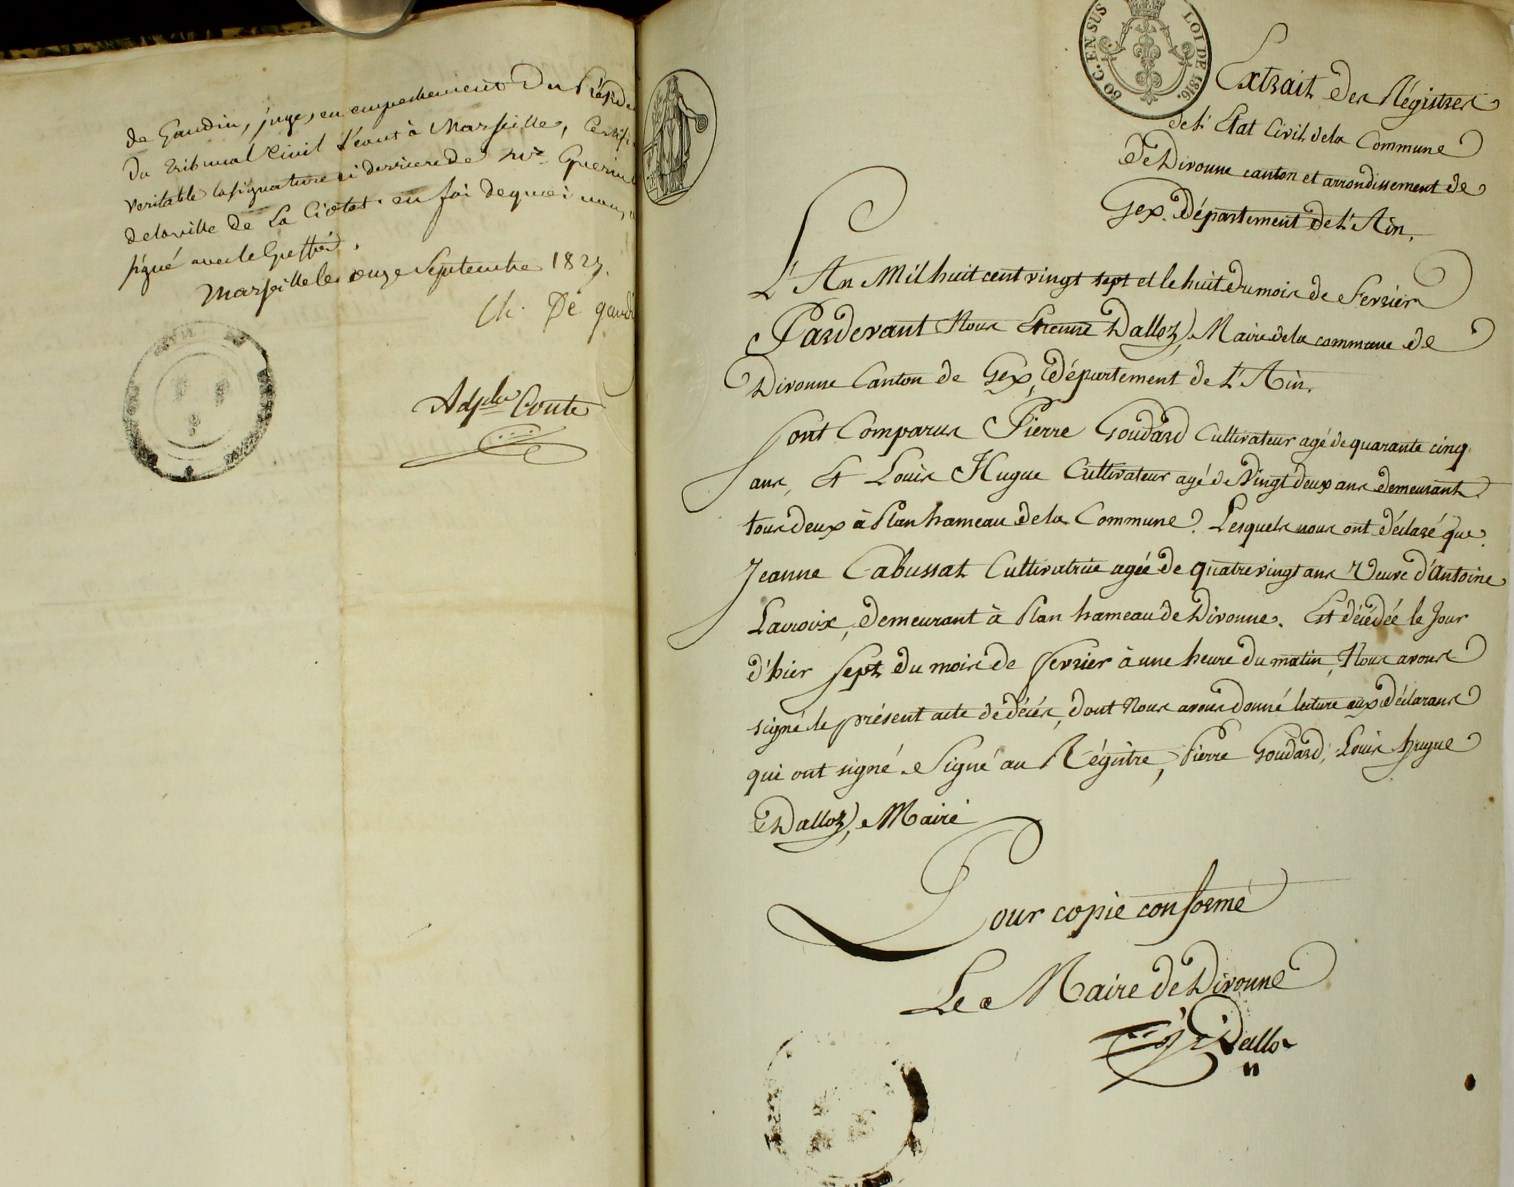 de Gaudin, juge, en empechement du Présid
du tribunal Civil séant à Marseille, Certif
veritable la signature ci derriere de Mr. Guerin
de la ville de La Ciotat. en foi de quoi nous
signé avec le Greffier.
Marseille le onze Septembre 1827.
Ch. De gaudi
Adphe Conte
60 C. EN SUS
LOI DE 1816.
Extrait des Régistres
de l'Etat Civil de la Commune
de Divonne canton et arrondissement de
Gex. Département de L'Ain.
L'An Mil huit cent vingt sept et le huit du mois de Fevrier
Pardevant Nous Etienne Dalloz, Maire de la commune de
Divonne Canton de Gex, département de L'Ain.
Sont Comparus Pierre Goudard Cultivateur agé de quarante cinq
ans, Et Louis Hugue Cultivateur agé de vingt deux ans demeurant
tous deux à Plan hameau de la Commune. Lesquels nous ont déclaré que
Jeanne Cabussat Cultivatrice agée de quatrevingt ans Veuve d'Antoine
Lacroix, demeurant à Plan hameau de Divonne. Est décédée le Jour
d'hier sept du mois de fevrier à une heure du matin, Nous avons
signé le présent acte de décés, dont Nous avons donné lecture aux déclarans
qui ont signé. Signé au Régistre, Pierre Goudard, Louis hugue
E Dalloz, Maire
Pour copie conforme
Le Maire de Divonne
E Dalloz